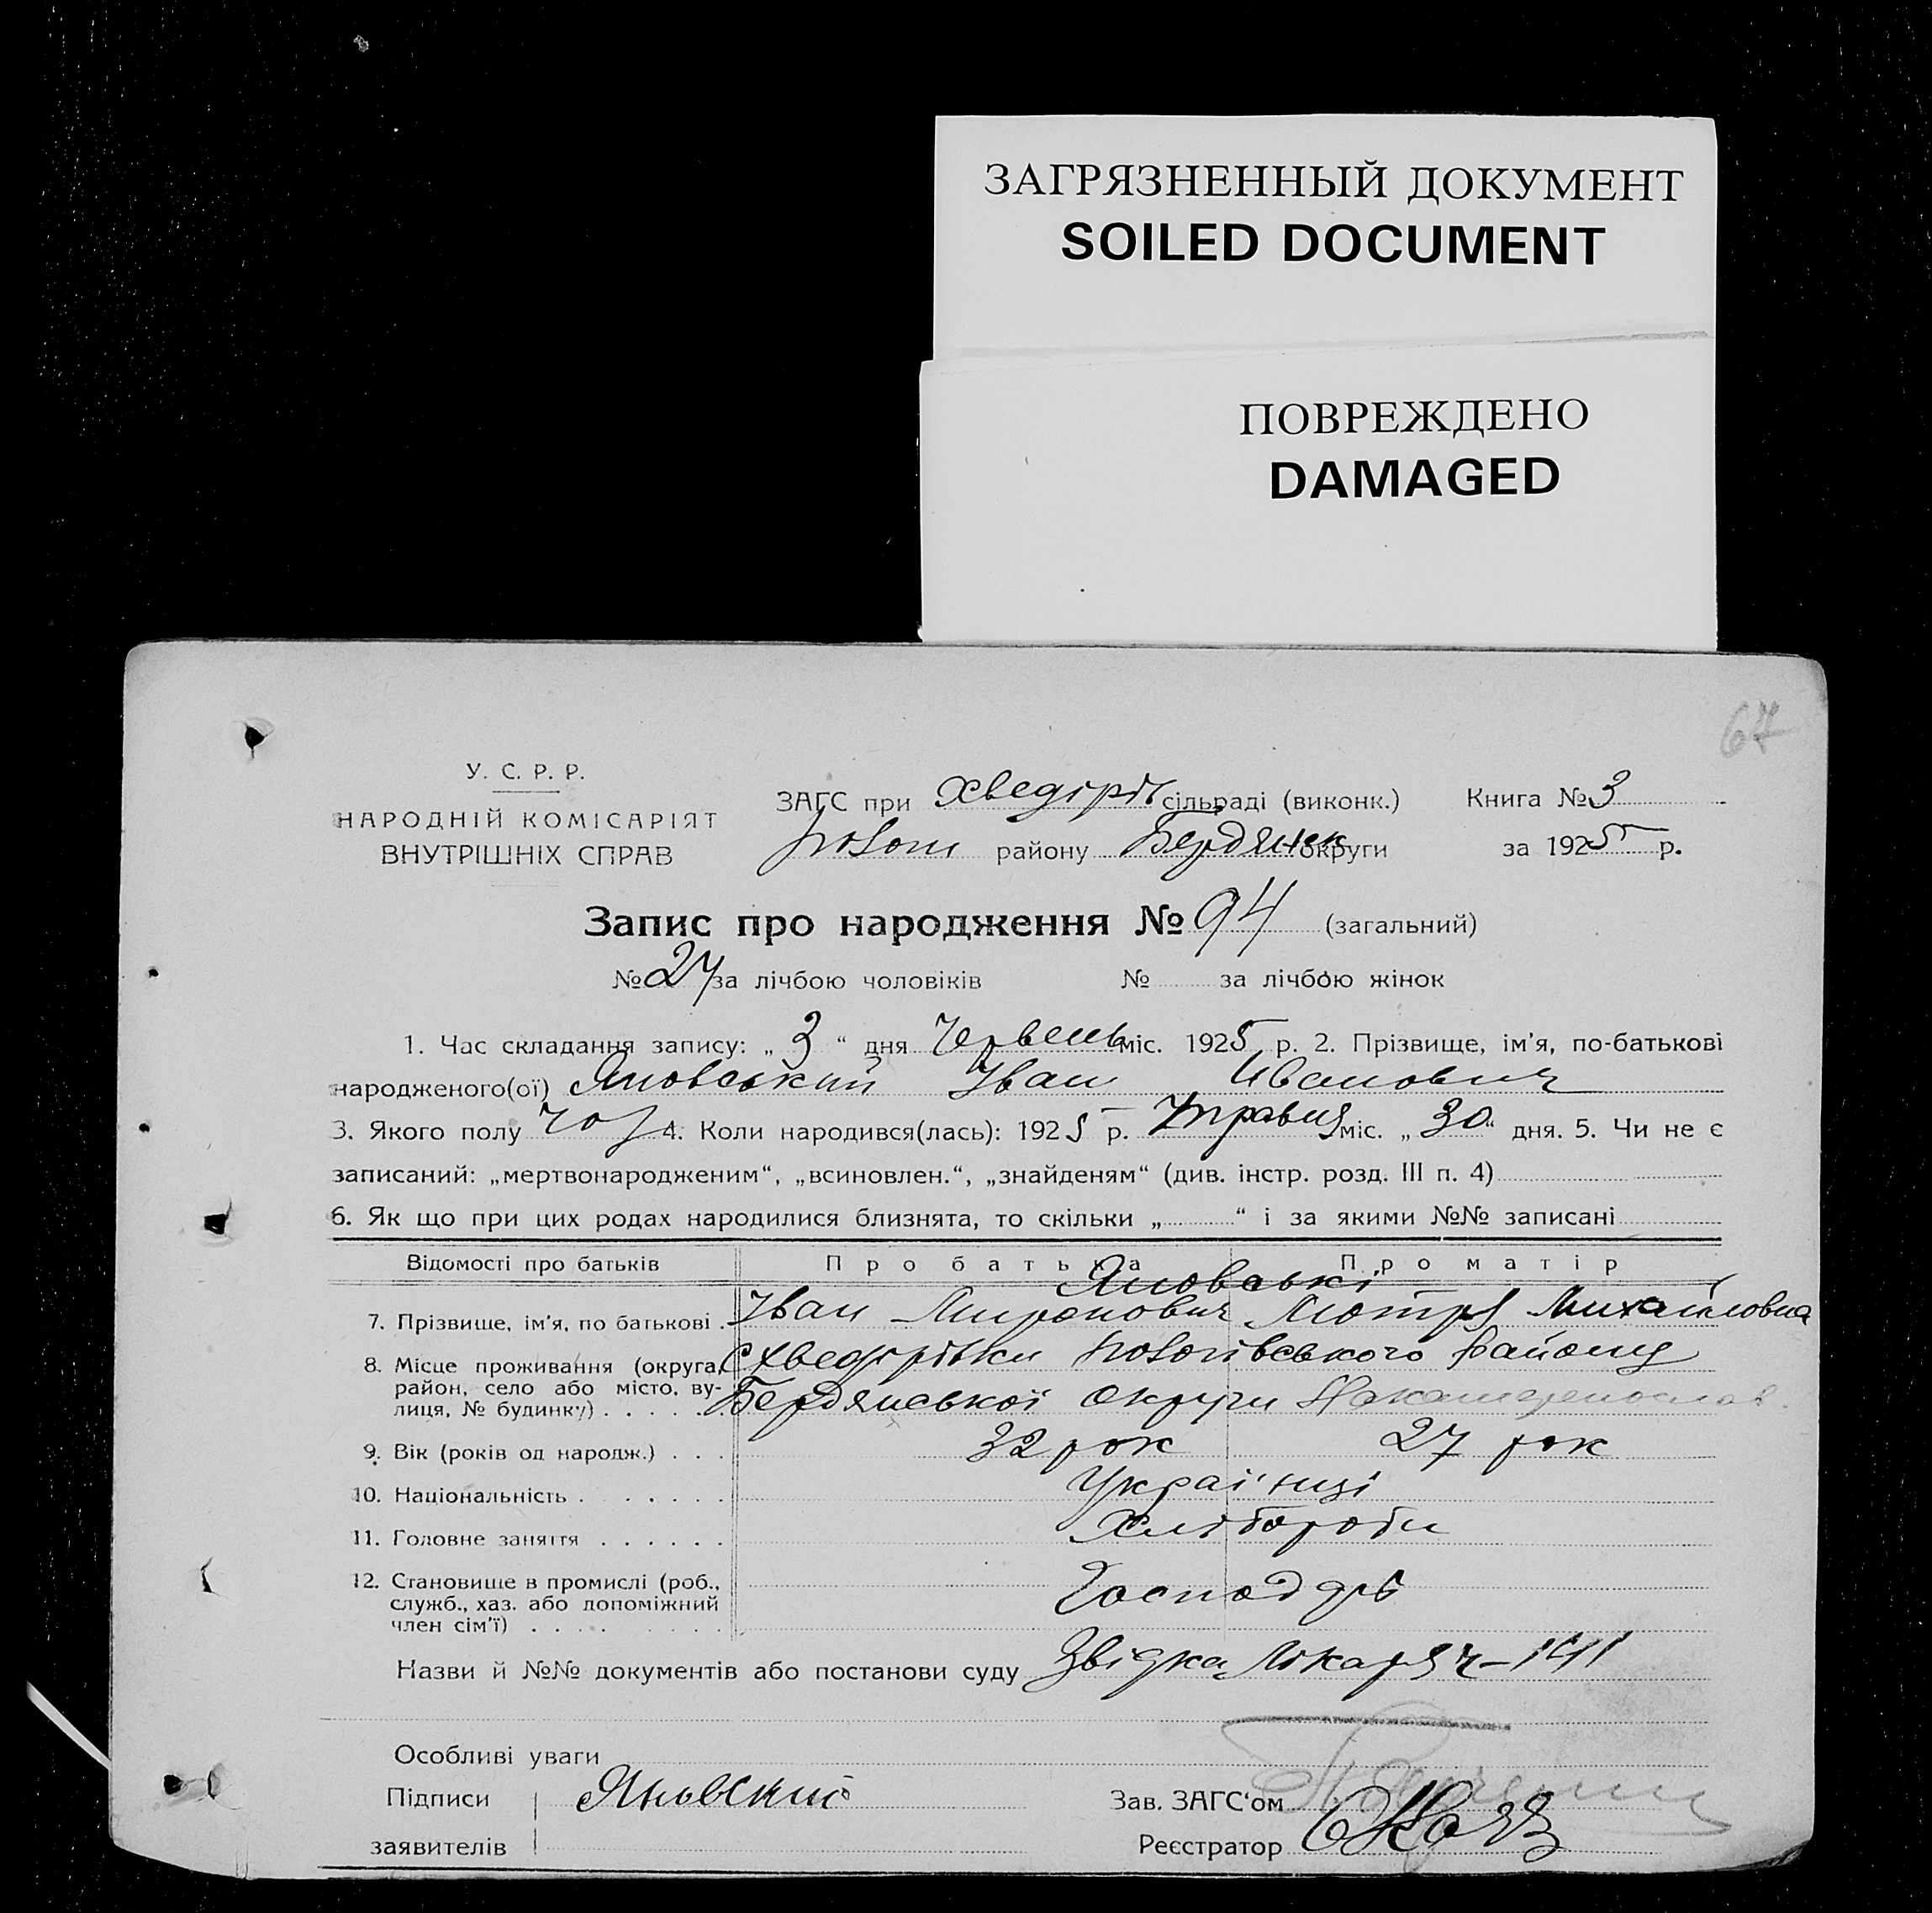 ЗАГРЯЗНЕННЫЙ ДОКУМЕНТ
SOILED DOCUMENT
ПОВРЕЖДЕНО
DAMAGED
67
У. С. Р. Р.
НАРОДНІЙ КОМІСАРІЯТ
ВНУТРІШНІХ СПРАВ
ЗАГС при Хведірів сільраді (виконк.)
району Бердянск округи
Книга № 3
за 1925 р.
Запис про народження № 94 (загальний)
№ 27 за лічбою чоловіків № за лічбою жінок
1. Час складання запису: „ 3 “ дня Червень міс. 1925 р. 2. Прізвище, ім'я, по-батькові
народженого(ої) Яновський Іван Иванович
3. Якого полу чол 4. Коли народився(лась): 1925 р. Травня міс. „ 30 “ дня. 5. Чи не є
записаний: „мертвонародженим“, „всиновлен.“, „знайденям“ (див. інстр. розд. III п. 4)
6. Як що при цих родах народилися близнята, то скільки „ “ і за якими №№ записані
Відомості про батьків Про батька Про матір
Яновські
7. Прізвище, ім'я, по батькові Іван Миронович Мотря Михайловна
8. Місце проживання (округа, с Хведірівки Пологівського району
район, село або місто, ву- Бердянської округи
лиця, № будинку)
9. Вік (років од народж.) 32 рок 27 рок
10. Національність Украі'нці
11. Головне заняття Хлібороби
12. Становище в промислі (роб., Господарі
служб., хаз. або допоміжний
член сім'ї)
Назви й №№ документів або постанови суду Звідка Лікаря ч-141
Особливі уваги
Підписи Яновский
заявителів
Зав. ЗАГС'ом
Реєстратор